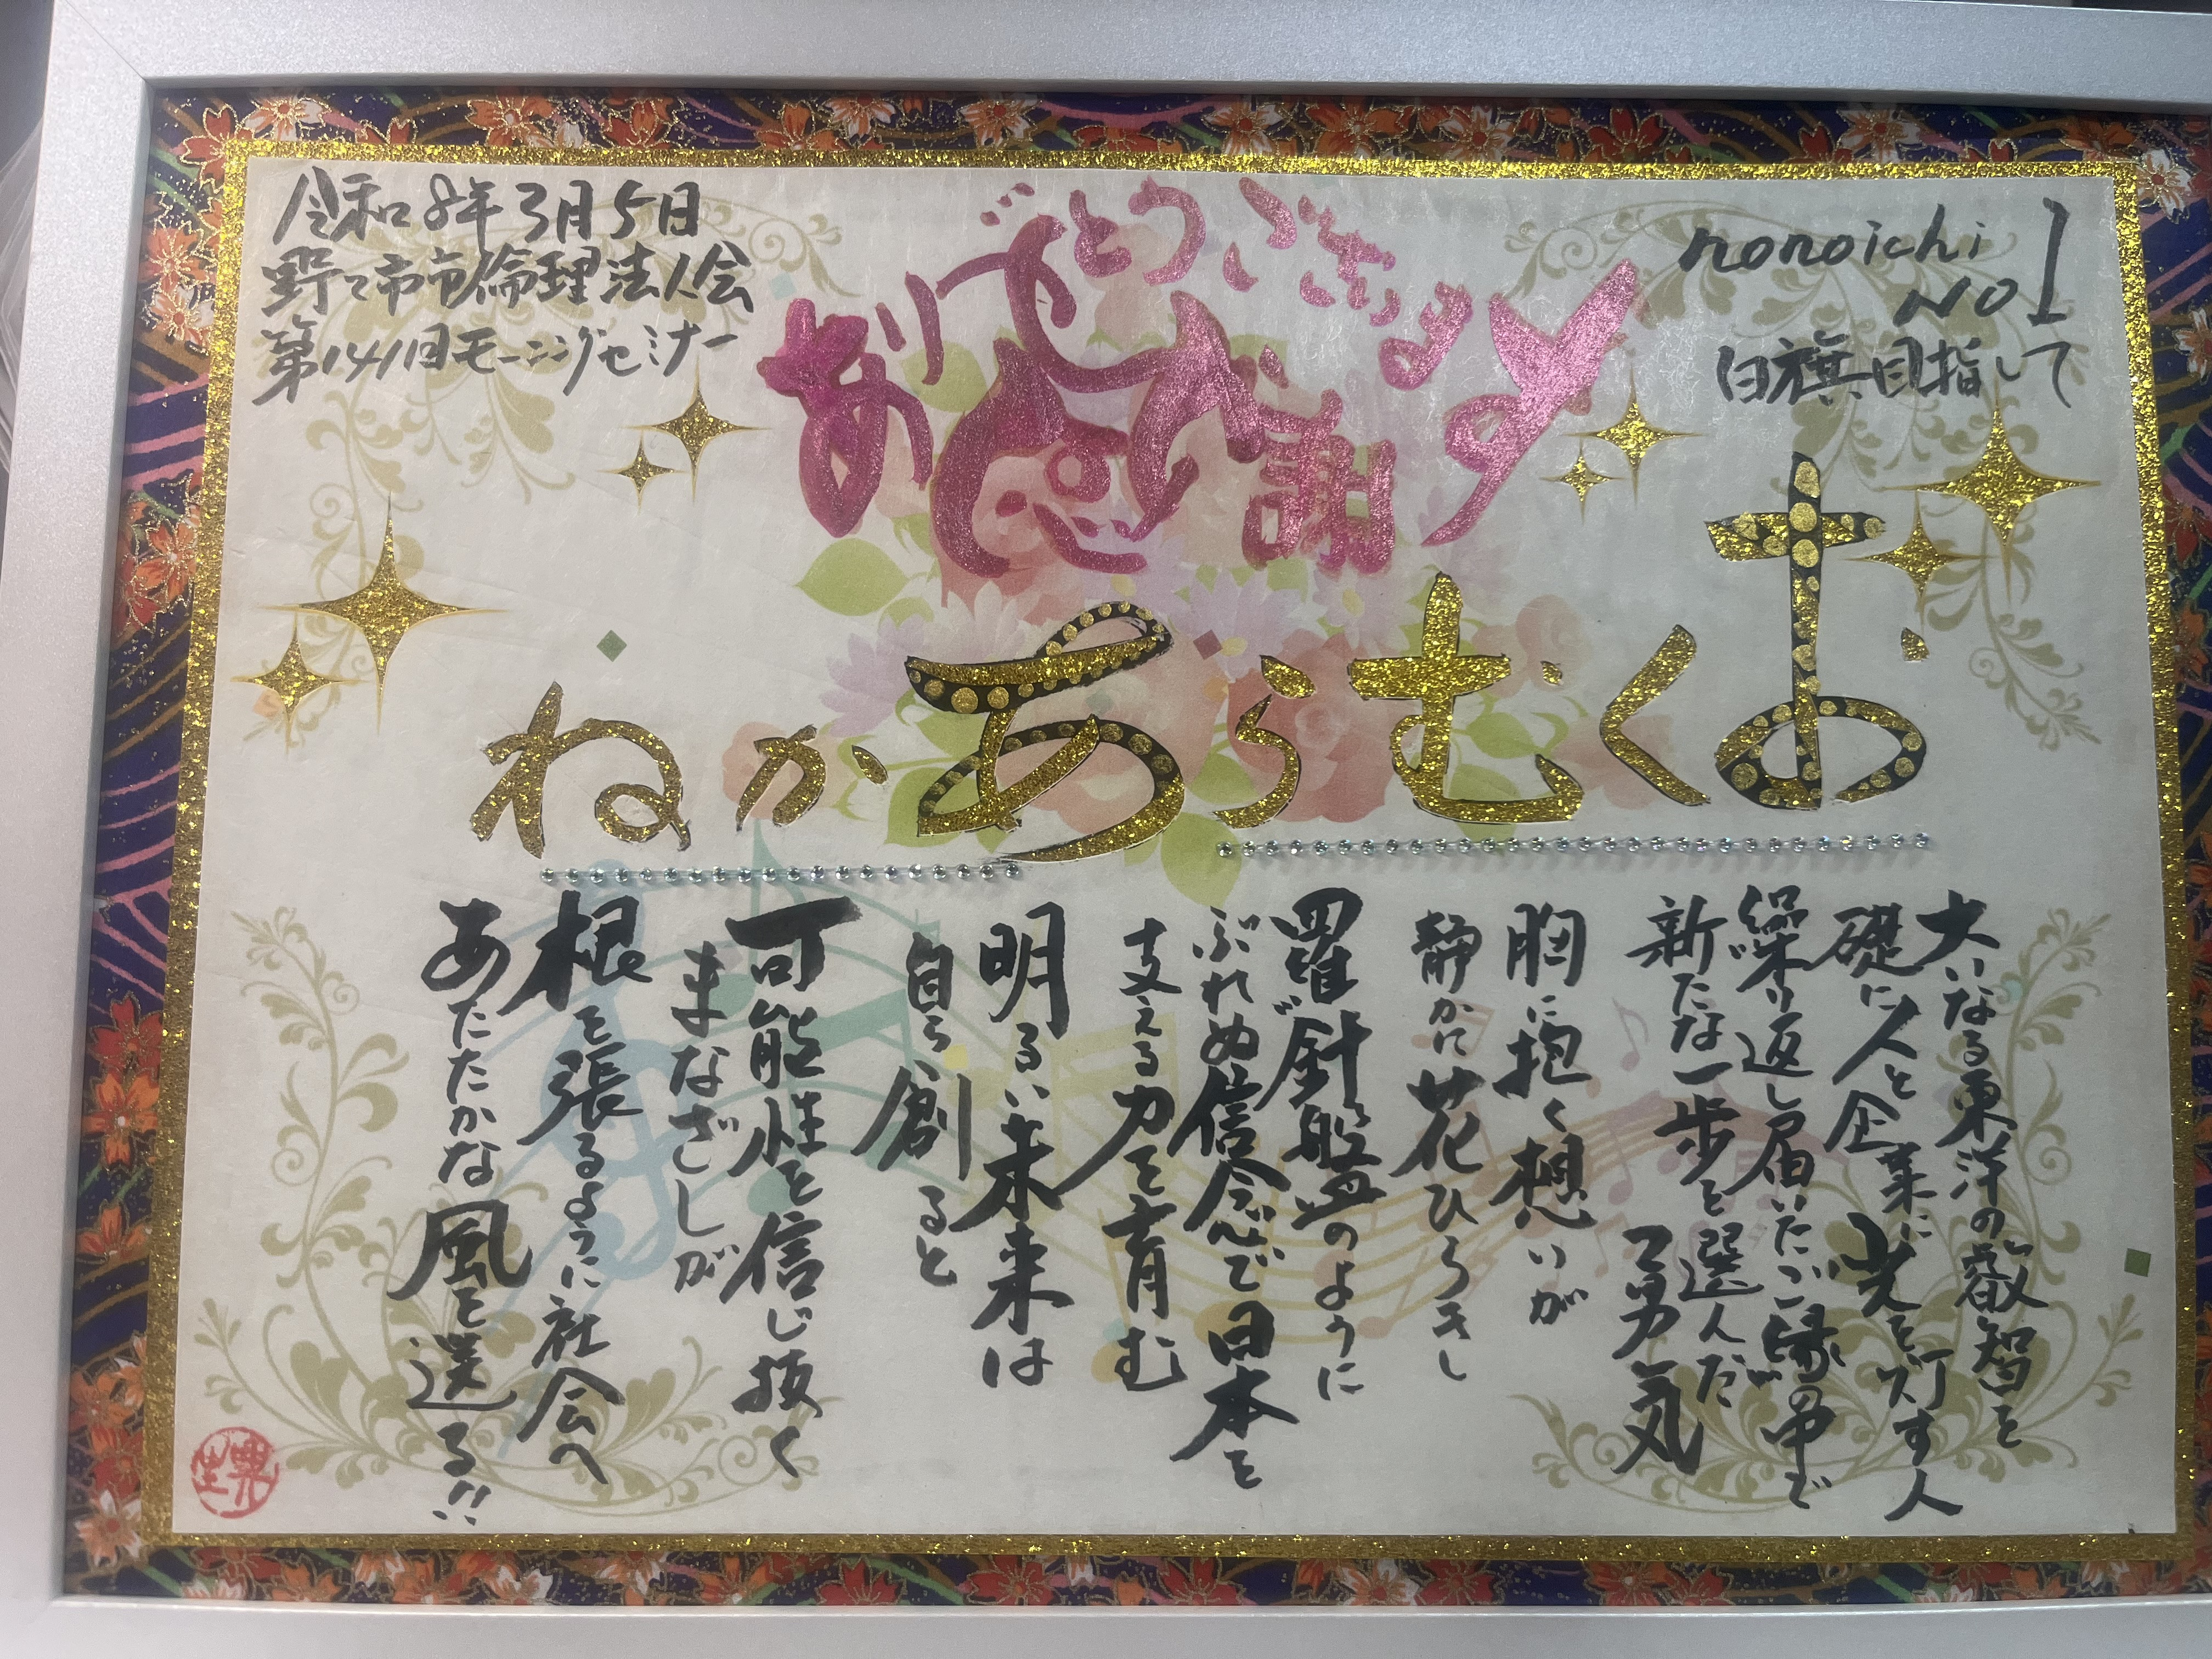 令和8年3月5日
野々市市倫理法人会
第141回モーニングセミナー
ありがとうございます
感謝
nonoichi
NO1
白旗目指して
おくむらあかね
大いなる東洋の叡智を
礎に人と企業に光を灯す人
繰り返し届いたご縁の中で
新たな一歩を選んだ
勇気
胸に抱く想いが
静かに花ひらきし
羅針盤のように
ぶれぬ信念で日本を
支える力を育む
明るい未来は
自ら創ると
可能性を信じ抜く
まなざしが
根を張るように社会へ
あたたかな風を送る!!